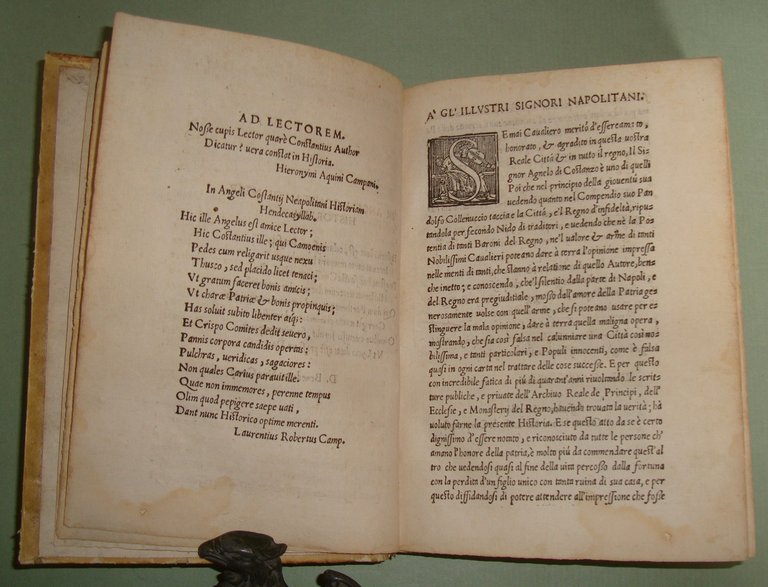 AD LECTOREM.
Nosse cupis Lector quarè Constantius Author
Dicatur? vera constat in Historia.
Hieronymi Aquini Campani.
In Angeli Costantij Neapolitani Historiam
Hendecasyllab.
Hic ille Angelus est amice Lector;
Hic Costantius ille; qui Camoenis
Pedes cum religarit usque nexu
Thusco, sed placido licet tenaci;
Vt gratum faceret bonis amicis;
Vt charæ Patriæ & bonis propinquis;
Has soluit subito libenter atq;:
Et Crispo Comites dedit seuero,
Pannis corpora candidis operias:
Pulchras, ueridicas, sagaciores:
Non quales Carius parauit ille.
Quae non immemores, perenne tempus
Olim quod pepigere saepe uati,
Dant nunc Historico optime merenti.
Laurentius Robertus Camp.
A' GL' ILLVSTRI SIGNORI NAPOLITANI.
SE mai Caualiero meritò d'essere amato,
honorato, & agradito in questa uostra
Reale Città & in tutto il regno, Il Si
gnor Agnelo di Costanzo è uno di quelli
Poi che nel principio della giouentù sua
uedendo quanto nel Compendio suo Pan
dolfo Collenuccio taccia e la Città, e'l Regno d'infideltà, ripu
tandola per secondo Nido di traditori, e uedendo che nè la Po
tentia di tanti Baroni del Regno, ne'l ualore & arme di tanti
Nobilissimi Caualieri poteano dare à terra l'opinione impressa
nelle menti di tanti, che stanno à relatione di quello Autore, bens
che inetto; e conoscendo, che'l silentio dalla parte di Napoli, e
del Regno era pregiuditiale, mosso dall'amore della Patria ge
nerosamente uolse con quell'arme, che si potano usare per es
stinguere la mala opinione, dare à terra quella maligna opera,
mostrando, che sia così falsa nel calunniare una Città così no
bilissima, e tanti particolari, e Populi innocenti, come è falsa
quasi in ogni carta nel trattare delle cose successe. E per questo
con incredibile fatica di più di quarant'anni riuoltando le scrit
ture publiche, e priuate dell'Archiuo Reale de Principi, dell'
Ecclesie, e Monasterij del Regno, hauendo trouata la uerità; hà
uoluto farne la presente Historia. E se questo atto da se è certo
dignissimo d'essere notato, e riconosciuto da tutte le persone ch'
amano l'honore della patria, è molto più da commendare quest'al
tro che uedendosi quasi al fine della uita percosso dalla fortuna
con la perdita d'un figlio unico con tanta ruina di sua casa, e per
questo diffidandosi di potere attendere all'impressione che fosse